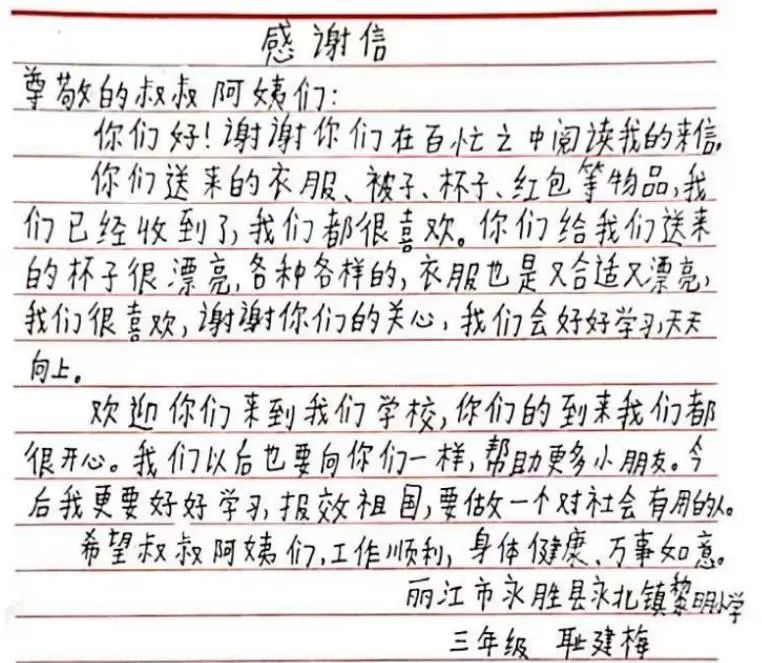 感谢信
尊敬的叔叔阿姨们:
你们好!谢谢你们在百忙之中阅读我的来信。
你们送来的衣服、被子、杯子、红包等物品,我
们已经收到了,我们都很喜欢。你们给我们送来
的杯子很漂亮,各种各样的,衣服也是又合适又漂亮,
我们很喜欢,谢谢你们的关心,我们会好好学习,天天
向上。
欢迎你们来到我们学校,你们的到来我们都
很开心。我们以后也要向你们一样,帮助更多小朋友。今
后我更要好好学习,报效祖国,要做一个对社会有用的人。
希望叔叔阿姨们,工作顺利,身体健康、万事如意。
丽江市永胜县永北镇黎明小学
三年级 耿建梅